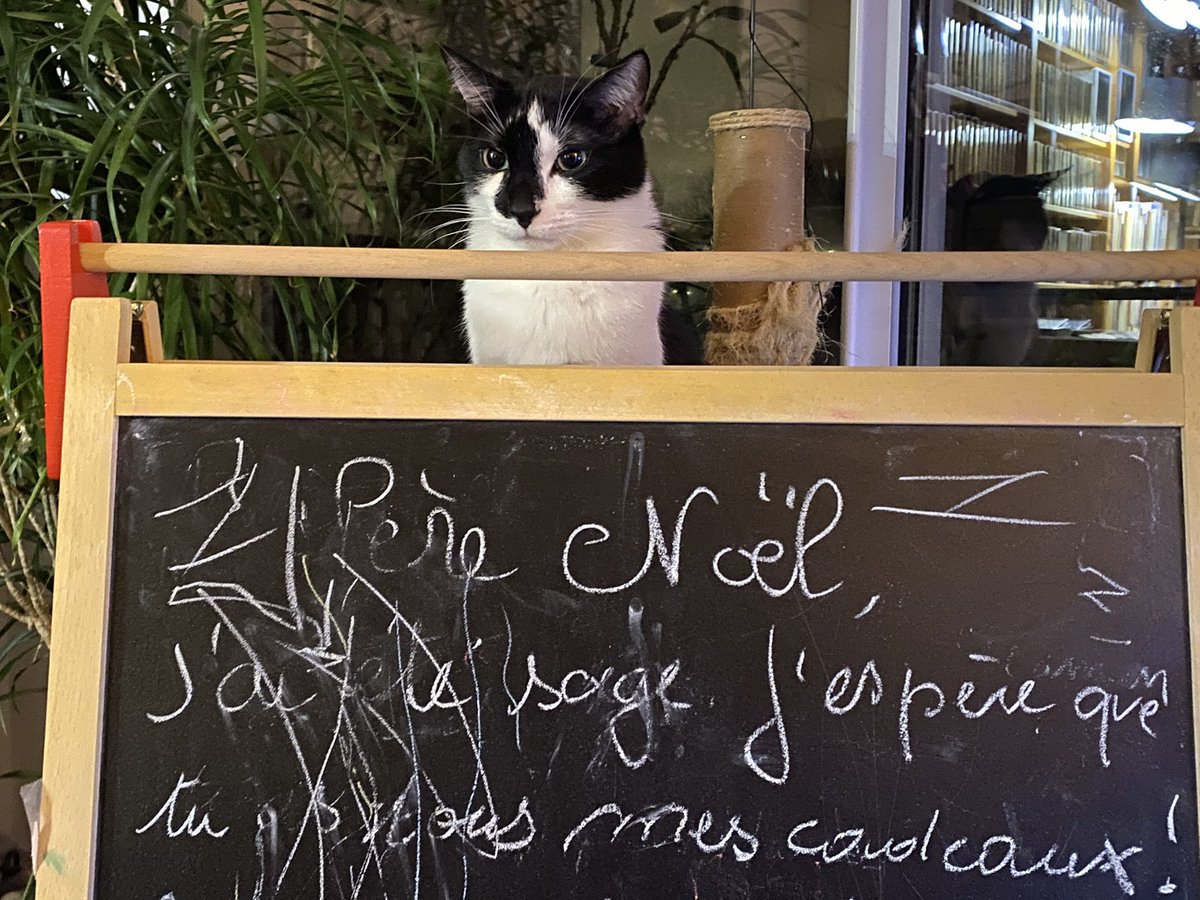 Père Noël,
J'ai été sage J'espère que
tu tous mes cadeaux !